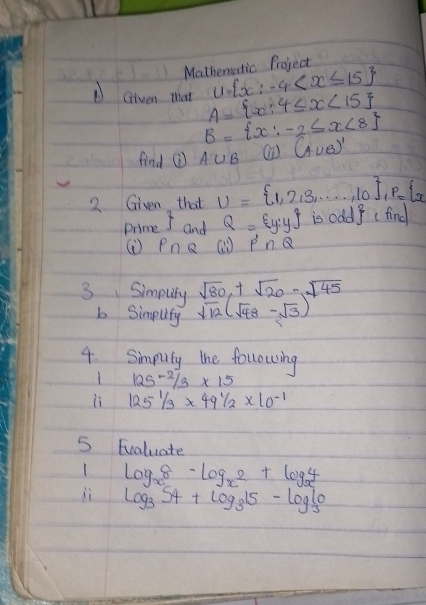 Mathematic Project
1) Given that U={x: -4<x≤15}
A = {x: 4≤x<15}
B = {x: -2≤x<8}
find (i) AUB (ii) (AUB)'
2 Given that U = {1,2,3,....,10}, P={x
prime} and Q = {y:y} is odd} find
(i) P∩Q (ii) P'∩Q
3 Simplify √80 + √20 - √45
b Simplify √12(√48 - √3)
4. Simplify the following
i 125^-2/3 x 15
ii 125^1/3 x 49^1/2 x 10^-1
5 Evaluate
i Log_x 8 - log_x 2 + log_x 4
ii Log_3 54 + log_3 15 - log_3 10